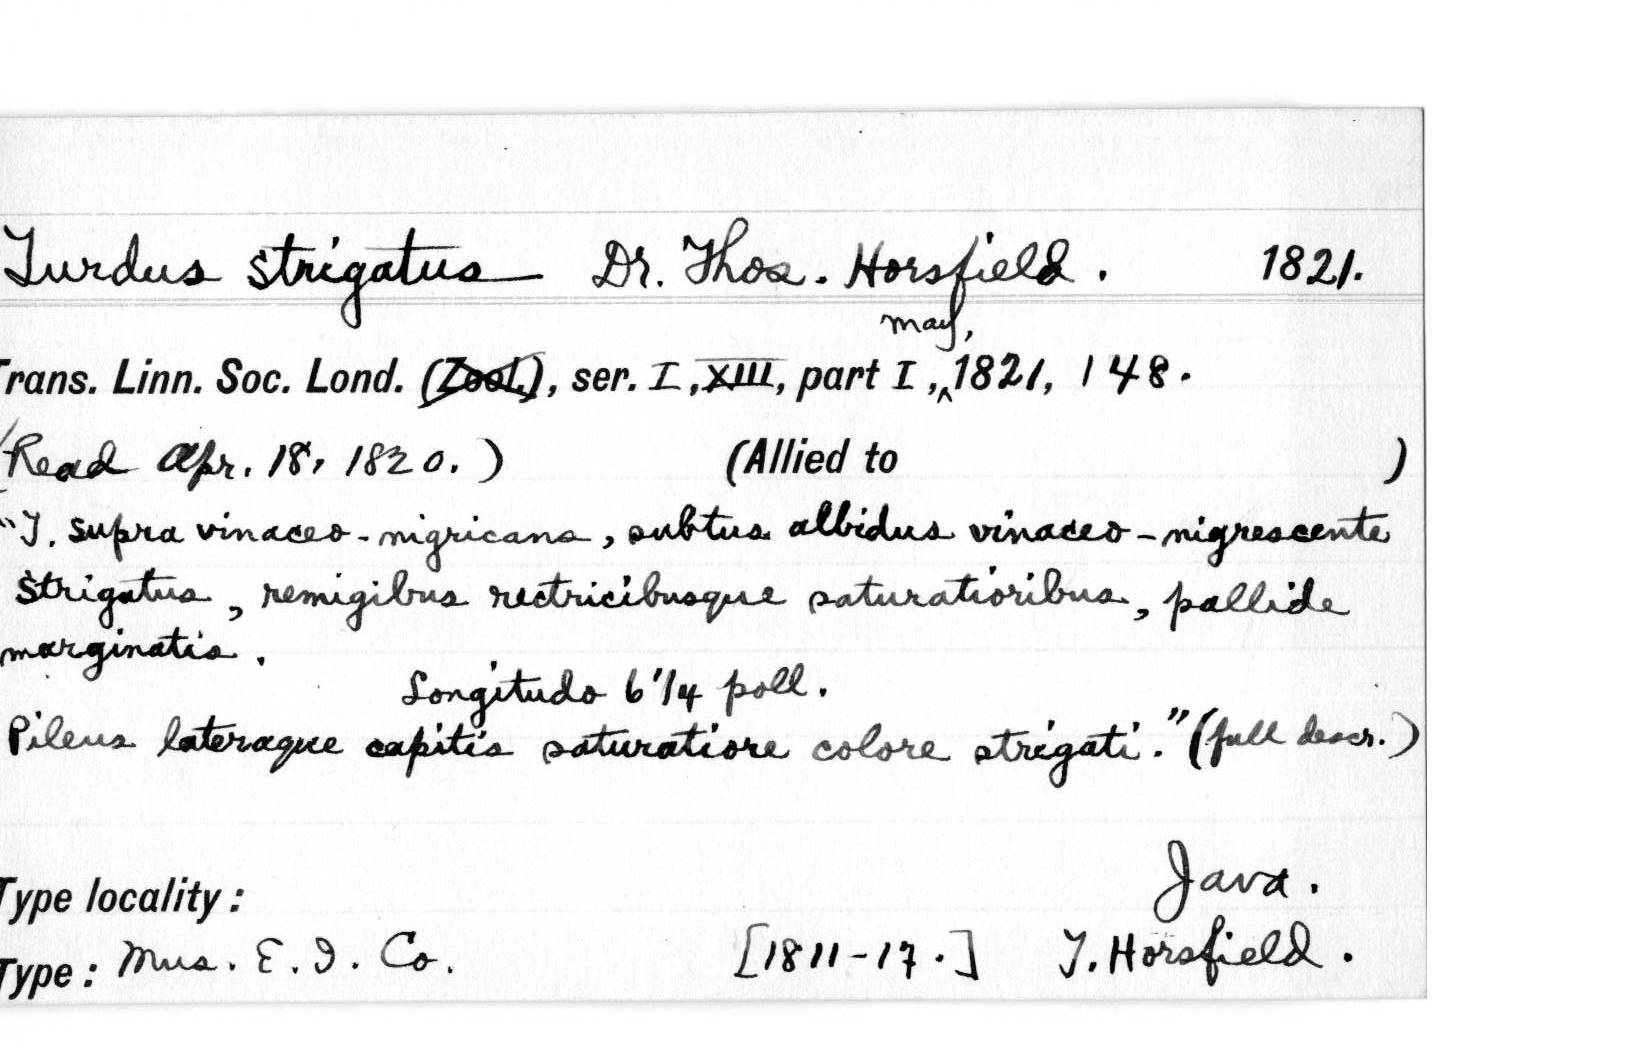 Turdus strigatus Dr. Thos. Horsfield. 1821.
may,
Trans. Linn. Soc. Lond. (Zool.), ser. I, XIII, part I, ^ 1821, 148.
(Read Apr. 18, 1820.) (Allied to )
"T. supra vinaceo-nigricans, subtus albidus vinaceo-nigrescente
strigatus, remigibus rectricibusque saturatioribus, pallide
marginatis.
Longitudo 6 1/4 poll.
Pileus lateraque capitis saturatiore colore strigati." (full descr.)
Java.
Type locality:
Type: Mus. E. I. Co. [1811-17.] T. Horsfield.